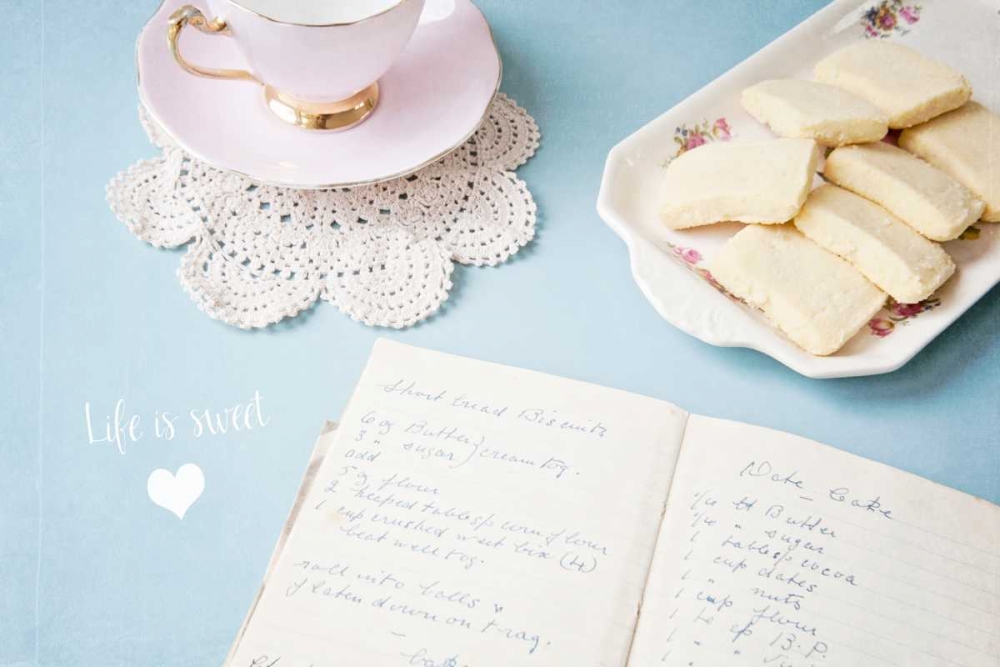 Life is sweet
Short bread Biscuits
6 oz Butter } cream tog.
3 " sugar
add
5 oz flour
2 heaped tablesp cornflour
1 cup crushed weet bix (4)
beat well tog.
roll into balls
flaten down on trag.
Date Cake
1/4 lb Butter
1/4 " sugar
1 tablesp cocoa
1 cup dates
1 " nuts
1 cup flour
1 tsp B.P.